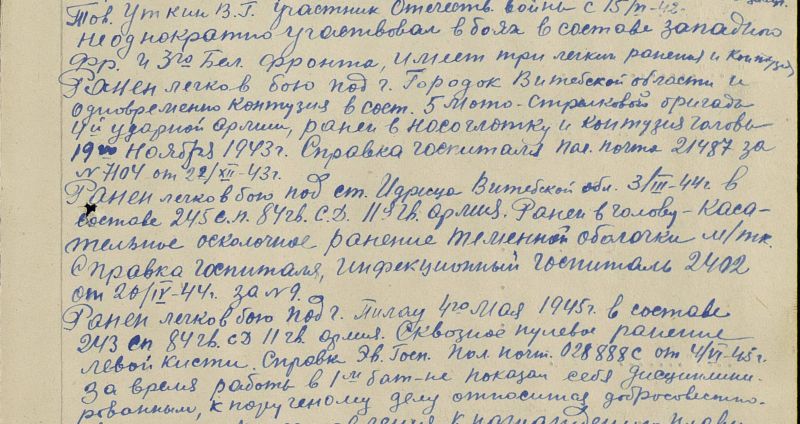 Тов. Уткин В.Г. участник Отечеств. войны с 15/
неоднократно участвовал в боях в составе западного
фр. и 3го Бел. фронта, имеет три легких ранения и контузию
Ранен легко в бою под г. Городок Витебской области и
одновременно контузия в сост. 5 мото-стрелковой бригады
4й ударной армии, ранен в носоглотку и контузия головы
19го ноября 1943г. Справка госпиталя пол. почта 21487 за
№ 7104 от 22/XII-43г.
Ранен легко в бою под ст. Идрица Витебской обл. 3/III-44г. в
составе 245 с.п. 84гв. С.Д. 11й гв. армия. Ранен в голову - каса-
тельное осколочное ранение теменной оболочки м/тк.
Справка госпиталя, инфекционный госпиталь 2402
от 20/IV-44г. за №9.
Ранен легко в бою под г. Пилау 4го мая 1945г. в составе
243 сп 84гв. сД 11 гв. армия. Сквозное пулевое ранение
левой кисти. Справка Эв. Госп. Пол. почт. 028888с от 4/VI-45г.
За время работы в 1м бат-не показал себя дисциплини-
рованным, к порученому делу относится добросовестно.